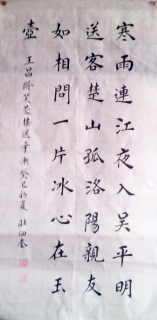 寒雨連江夜入吳平明
送客楚山孤洛陽親友
如相問一片冰心在玉
壺 王昌齡芙蓉樓送辛漸癸巳初夏